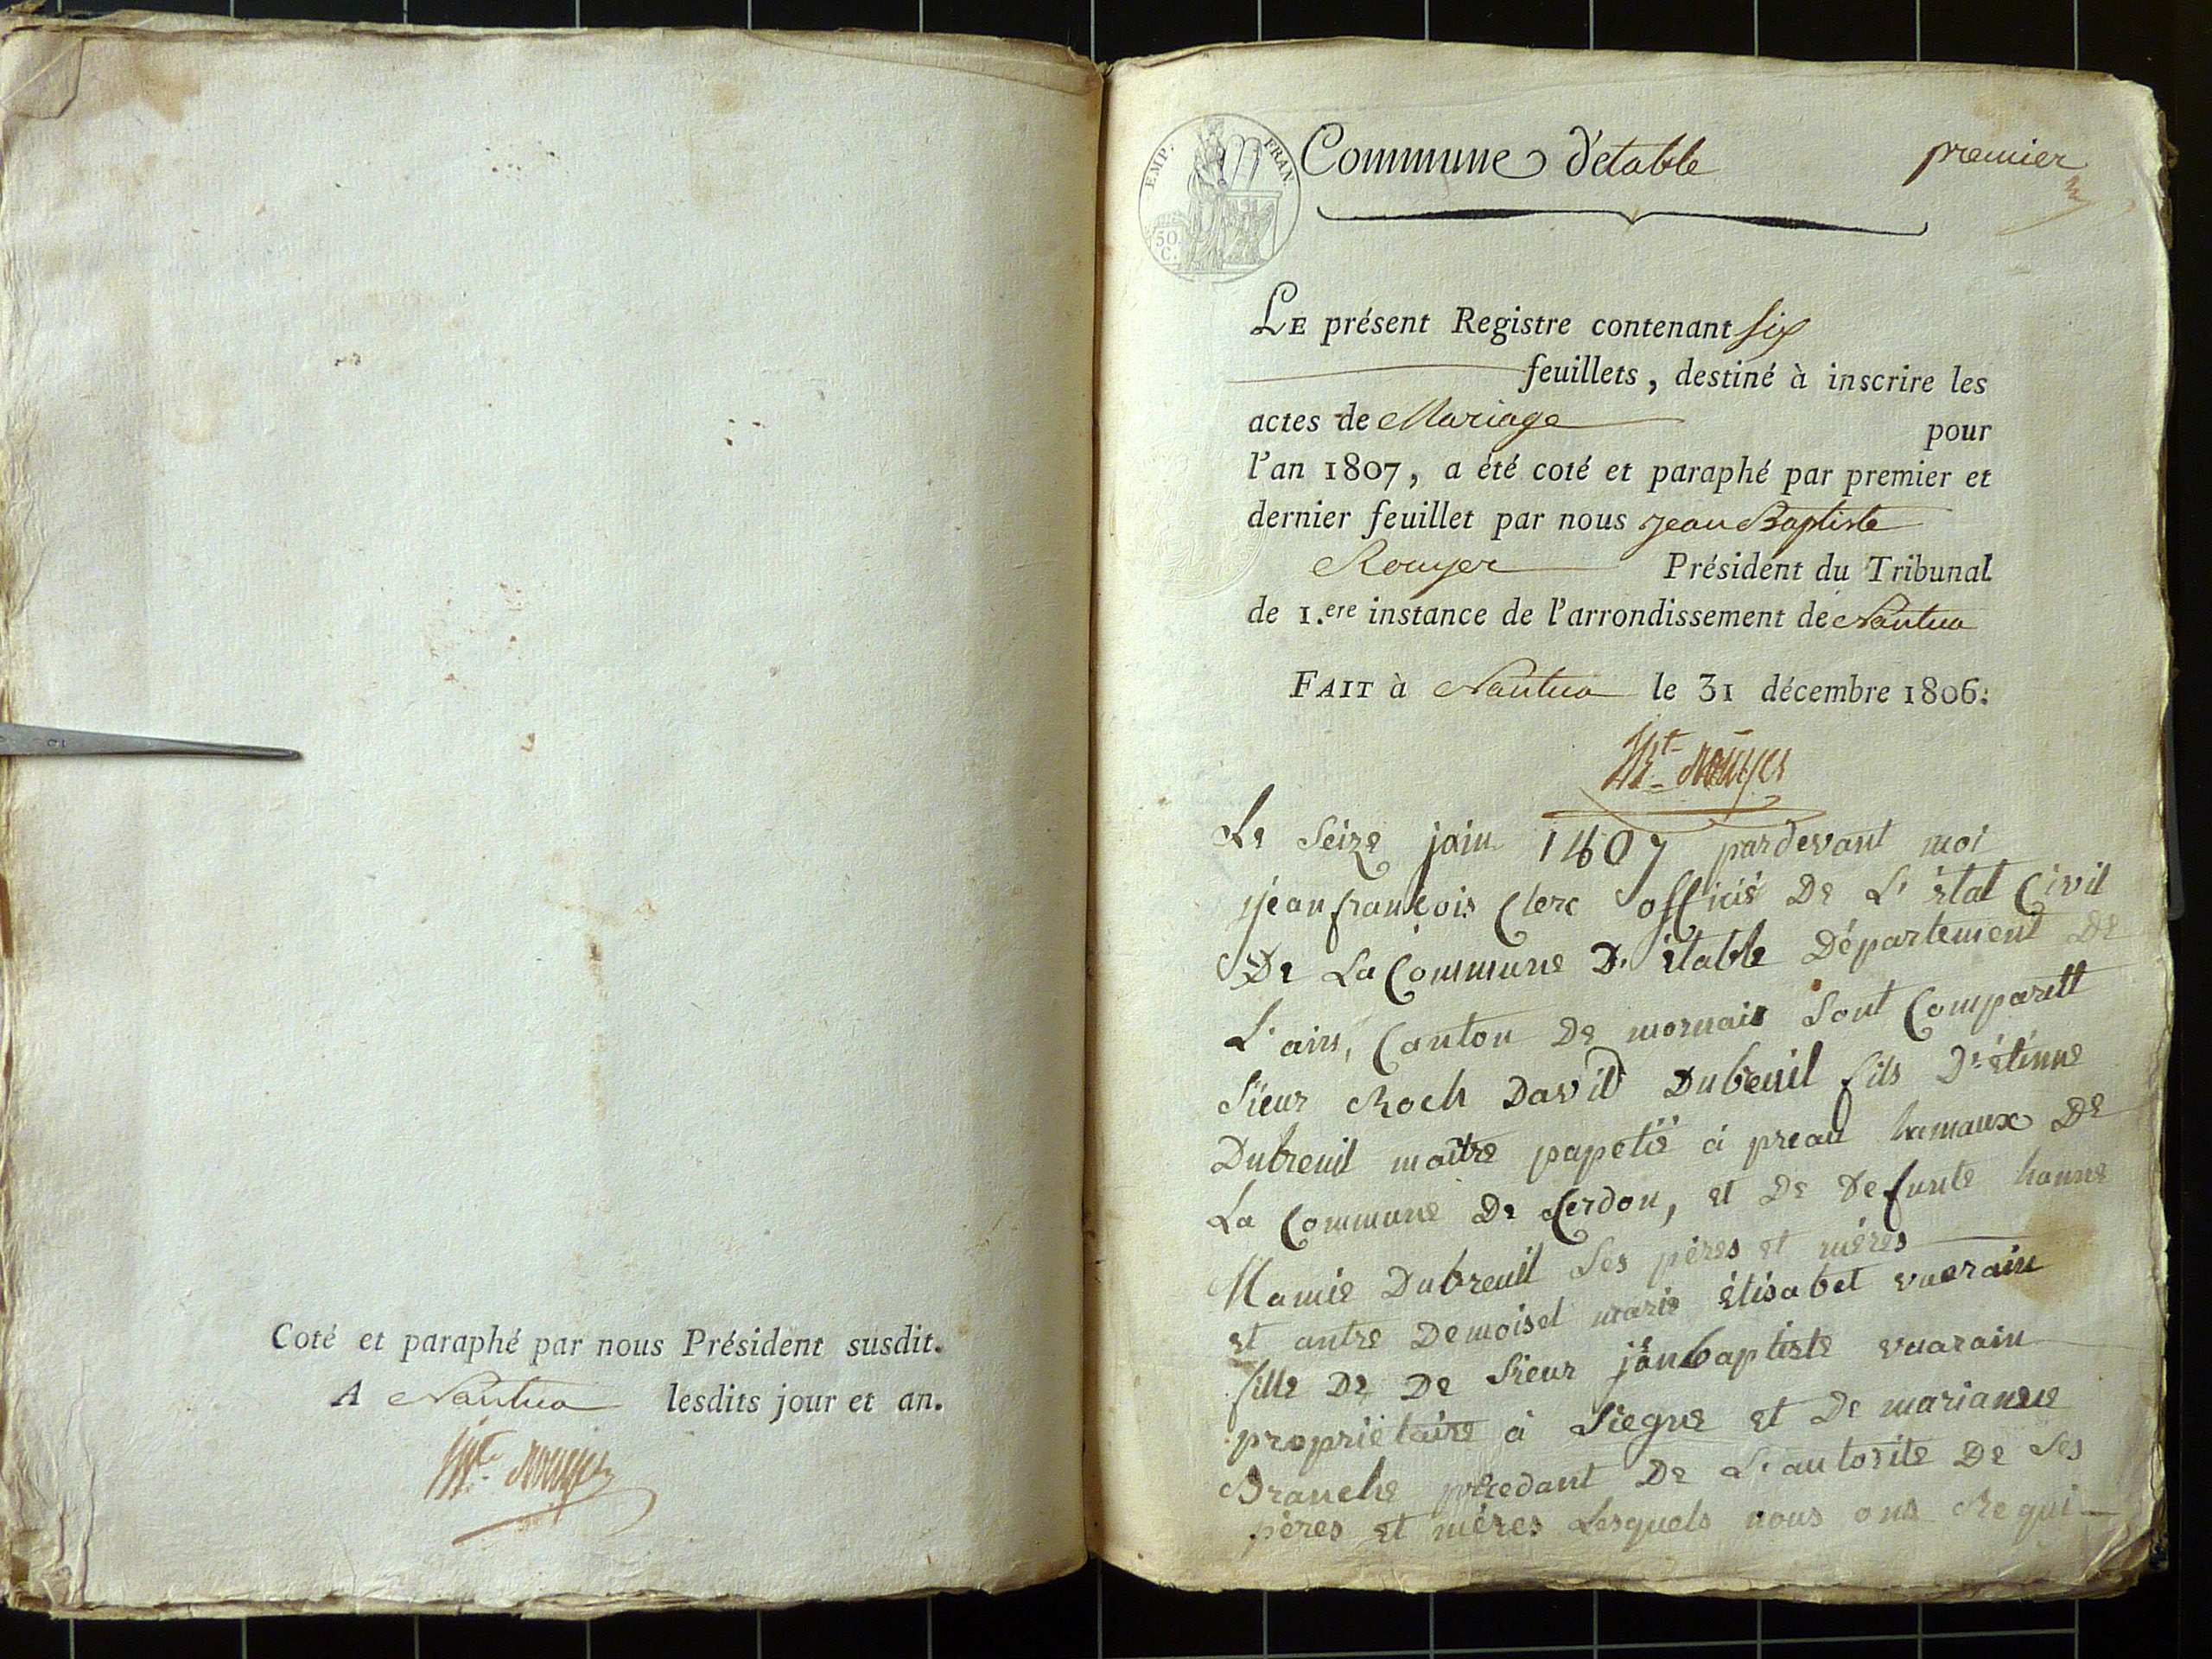 Coté et paraphé par nous Président susdit.
A Nantua lesdits jour et an.
Rouyer
EMP. FRAN.
50
C.
Commune d'etable
premier
LE présent Registre contenant six
feuillets, destiné à inscrire les
actes de Mariage pour
l'an 1807, a été coté et paraphé par premier et
dernier feuillet par nous jean Baptiste
Rouyer Président du Tribunal
de 1.ere instance de l'arrondissement de Nantua
FAIT à Nantua le 31 décembre 1806.
Rouyer
Le Seize juin 1807 pardevant moi
jean françois Clerc officié De L'état Civil
De La Commune D'étable Département De
L'ain, Canton De mornais Sont Comparett
Sieur Roch David Dubreuil fils D'étinne
Dubreuil maître papetié à preau hamaux De
La Commune De Cerdon, et De Defunte hanne
Mamie Dubreuil Ses pères et mères
et autre Demoisel marie élisabet vuarain
fille De De Sieur jean baptiste vuarain
propriétaire à Siegne et De marianne
Branche procedant De L'autorite De Ses
pères et mères Lesquels nous ons Requi-